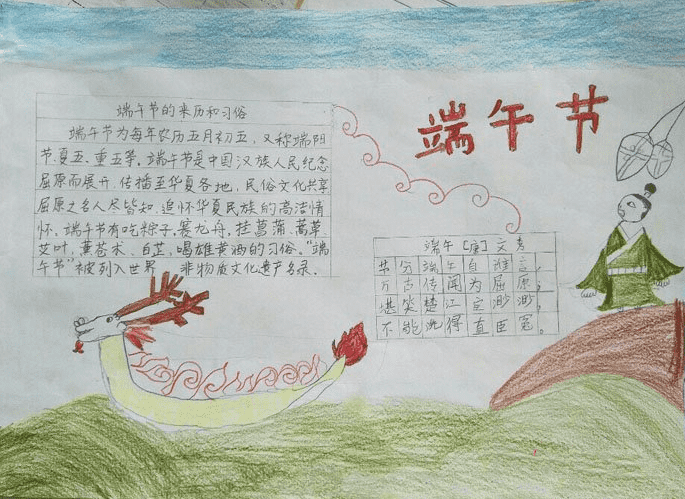 端午节
端午节的来历和习俗
端午节为每年农历五月初五，又称端阳
节、夏五、重五等。端午节是中国汉族人民纪念
屈原而展开，传播至华夏各地，民俗文化共享，
屈原之名人尽皆知，追怀华夏民族的高洁情
怀。端午节有吃粽子，赛龙舟，挂菖蒲、蒿草、
艾叶，薰苍术、白芷，喝雄黄酒的习俗。“端
午节”被列入世界 非物质文化遗产名录。
端午 [唐] 文秀
节分端午自谁言，
万古传闻为屈原；
堪笑楚江空渺渺，
不能洗得直臣冤。